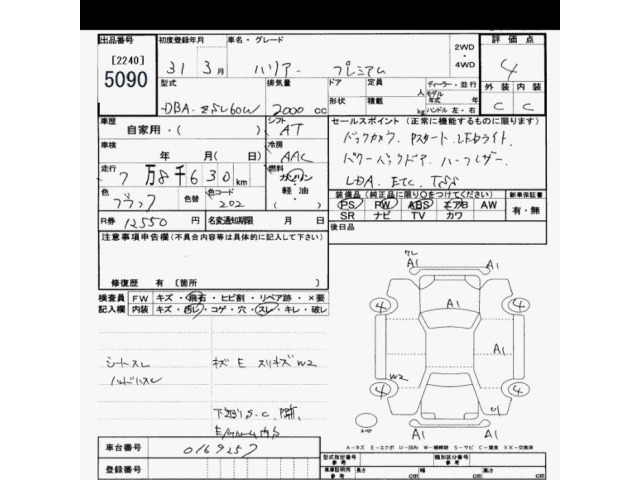 出品番号 初度登録年月 車名・グレード 2WD ・ 4WD 評価点
[2240] 5090 31 3月 ハリアー プレミアム 4
型式 排気量 ドア 定員 人 ディーラー・並行 外装 内装
DBA-ZSU60W 2000 CC 形状 積載 モデル年式 年 ハンドル 左・右 C C
車歴 自家用・( ) シフト AT セールスポイント(正常に機能するものに限ります)
車検 年 月(日) 冷房 AAC バックカメラ Pスタート LEDライト
走行 7万8千630km 燃料 ガソリン・軽・油 パワーバックドア ハーフレザー
LDA ETC TSS
色 ブラック 色替 色コード 202 装備品(純正品に限り○をつけてください) 新車保証書
R券 12550円 名変通知期限 月 日 PS PW ABS エアB AW 有・無
SR ナビ TV カワ
注意事項申告欄(不具合内容等は具体的に記入して下さい) 後日品
修復歴 有 [箇所
検査員記入欄 FW キズ・飛石・ヒビ割・リペア跡・×要
内装 キズ・汚レ・コゲ・穴・スレ・キレ・破レ
A1 A1
A1
4 4
A1
A1
W2
4 4
シートスレ キズ E スリキズ W2
ハンドルスレ
下廻りS.C.
スペア
A-キズ E-エクボ U-凹み W-補修跡 S-サビ C-腐食 XX-交換済
車台番号 0169257
登録番号
型式指定番号 参考 類別区分番号 参考
車庫証明用 参考 長さ cm 幅 cm 高さ cm